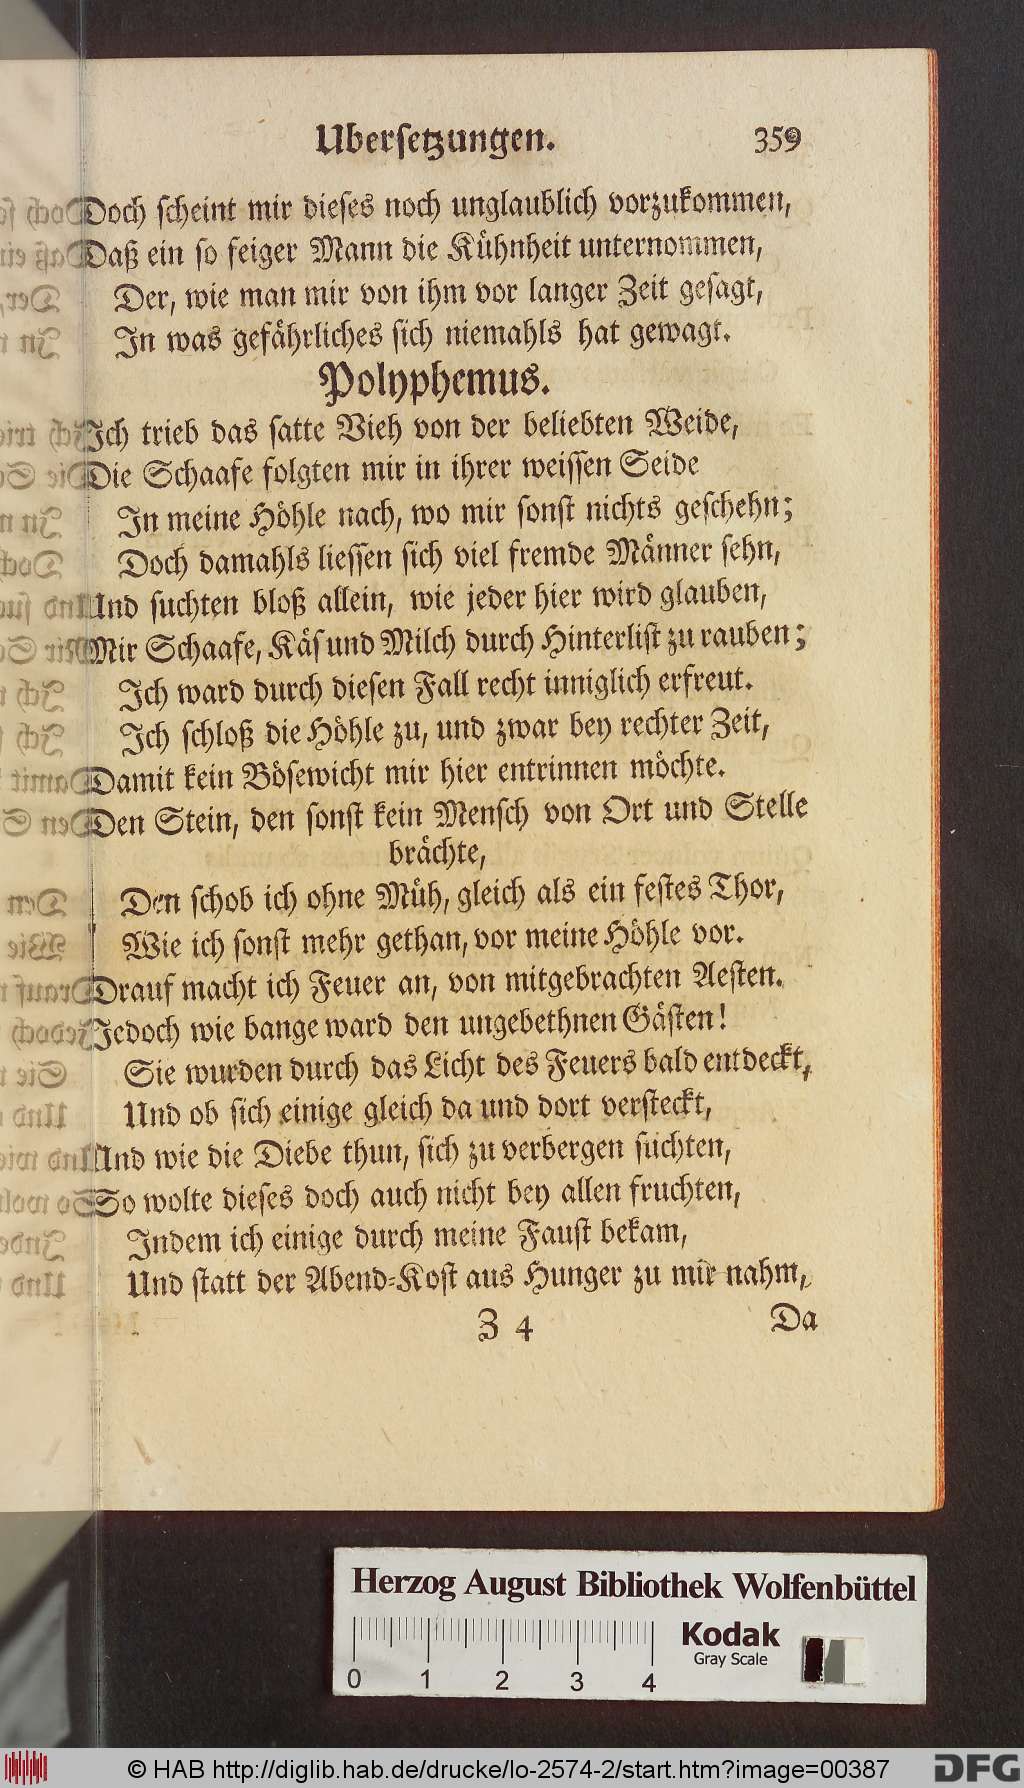 Ubersetzungen. 359
Doch scheint mir dieses noch unglaublich vorzukommen,
Daß ein so feiger Mann die Kühnheit unternommen,
Der, wie man mir von ihm vor langer Zeit gesagt,
In was gefährliches sich niemahls hat gewagt.
Polyphemus.
Ich trieb das satte Vieh von der beliebten Weide,
Die Schaafe folgten mir in ihrer weissen Seide
In meine Höhle nach, wo mir sonst nichts geschehn;
Doch damahls liessen sich viel fremde Männer sehn,
Und suchten bloß allein, wie jeder hier wird glauben,
Mir Schaafe, Käs und Milch durch Hinterlist zu rauben;
Ich ward durch diesen Fall recht inniglich erfreut.
Ich schloß die Höhle zu, und zwar bey rechter Zeit,
Damit kein Bösewicht mir hier entrinnen möchte.
Den Stein, den sonst kein Mensch von Ort und Stelle
brächte,
Den schob ich ohne Müh, gleich als ein festes Thor,
Wie ich sonst mehr gethan, vor meine Höhle vor.
Drauf macht ich Feuer an, von mitgebrachten Aesten.
Jedoch wie bange ward den ungebethnen Gästen!
Sie wurden durch das Licht des Feuers bald entdeckt,
Und ob sich einige gleich da und dort versteckt,
Und wie die Diebe thun, sich zu verbergen suchten,
So wolte dieses doch auch nicht bey allen fruchten,
Indem ich einige durch meine Faust bekam,
Und statt der Abend-Kost aus Hunger zu mir nahm,
Z 4 Da
Herzog August Bibliothek Wolfenbüttel
Kodak
Gray Scale
0 1 2 3 4
© HAB http://diglib.hab.de/drucke/lo-2574-2/start.htm?image=00387
DFG